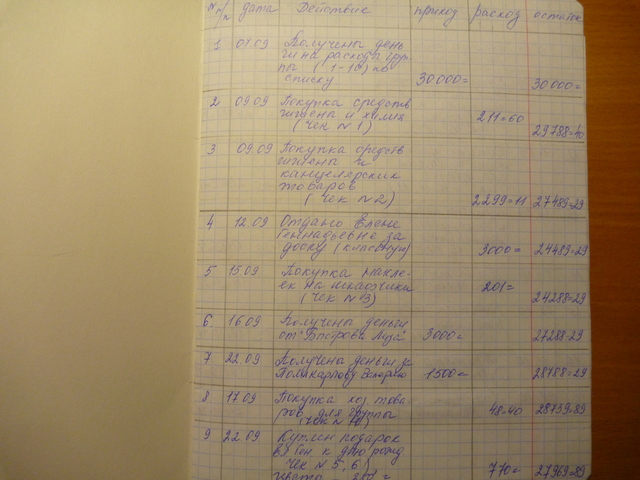 № п/п дата Действие приход расход остаток
1 07.09 Получены день
ги на расход. груп
пы (1-10) по
списку 30000= 30000=
2 09.09 Покупка средств
гигиена и химия
(чек №1) 211=60 29788=40
3 09.09 Покупка средств
гигиены и
канцелярских
товаров
(чек №2) 2299=11 27489=29
4 12.09 Отдано Елене
Геннадьевне за
доску (классную) 3000= 24489=29
5 15.09 Покупка накле-
ек на шкафчики
(чек №3) 201= 24288=29
6 16.09 Получены деньги
от 3000= 27288=29
7 22.09 Получены деньги за
Поликарпову 1500= 28788=29
8 17.09 Покупка хоз. това
ров для группы
48=40 28739=89
9 22.09 Куплен подарок
к дню рожд
чек № 5, 6)
770= 27969=89